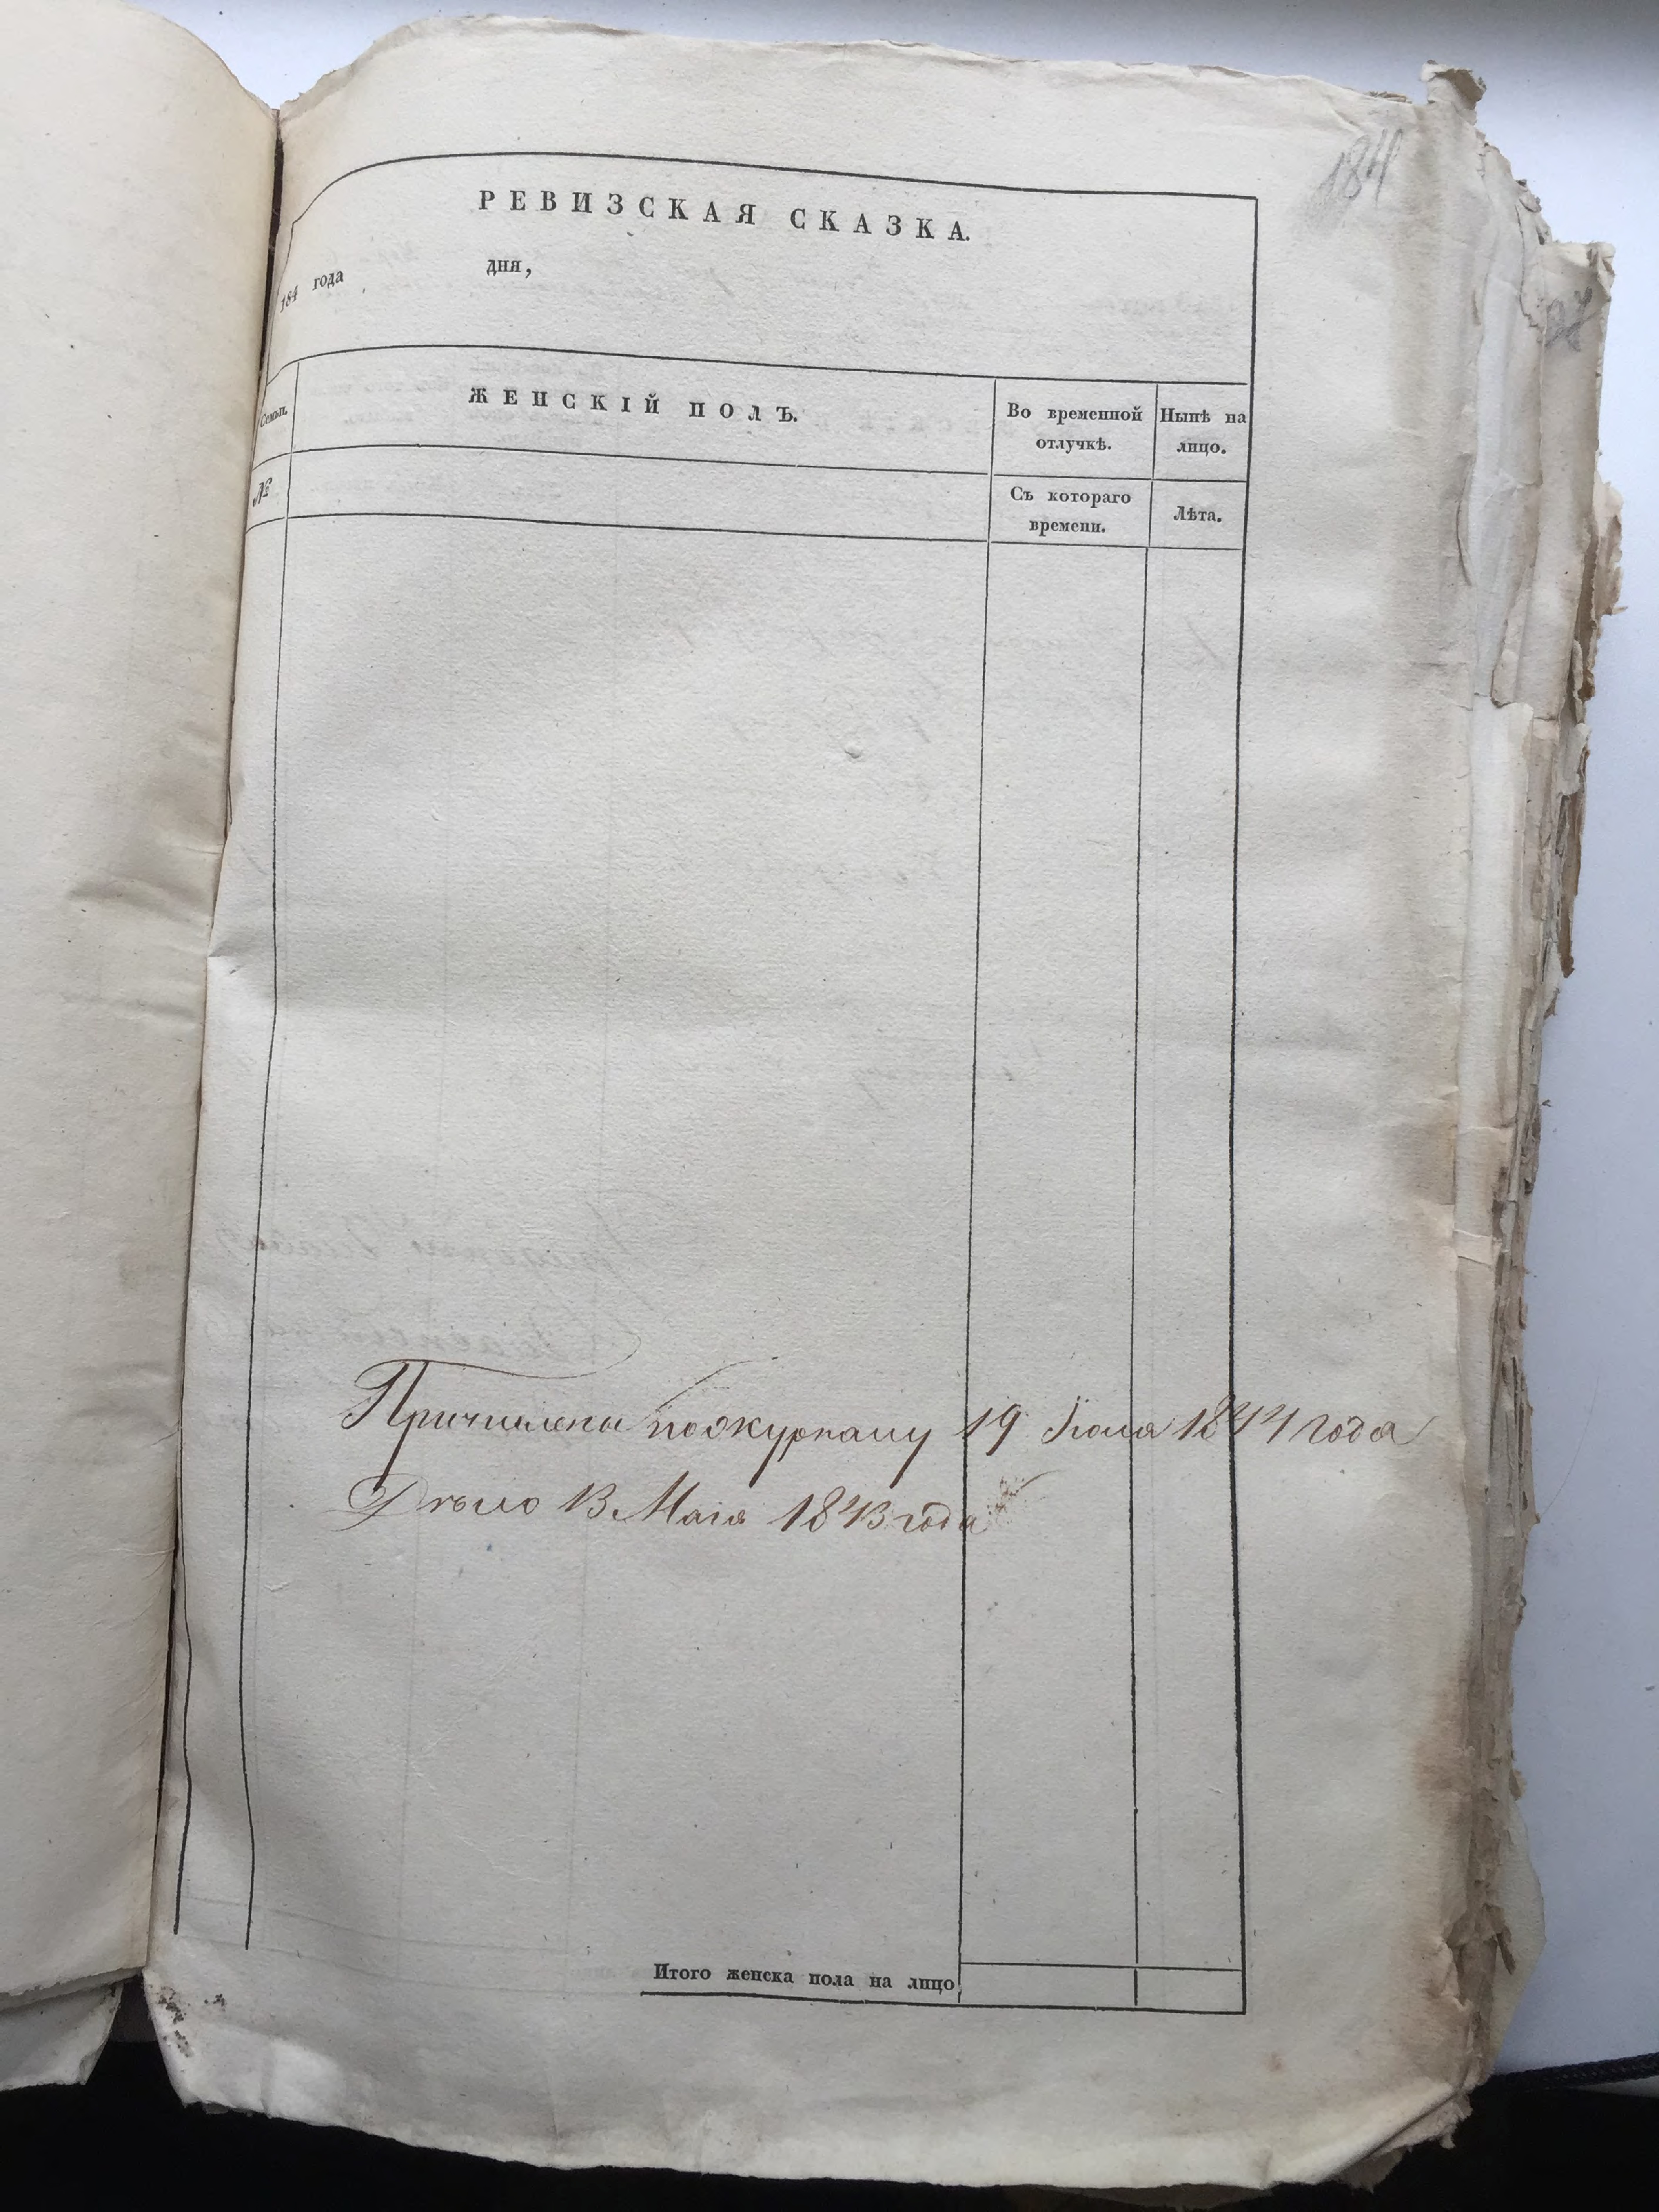 184
РЕВИЗСКАЯ СКАЗКА.
184 года дня,
Семьи. ЖЕНСКІЙ ПОЛЪ. Во временной отлучкѣ. Нынѣ на лицо.
№ Съ котораго времени. Лѣта.
Причислены по журналу 19 Іюля 1844 года
Дѣло 13 Мая 1843 года
Итого женска пола на лицо